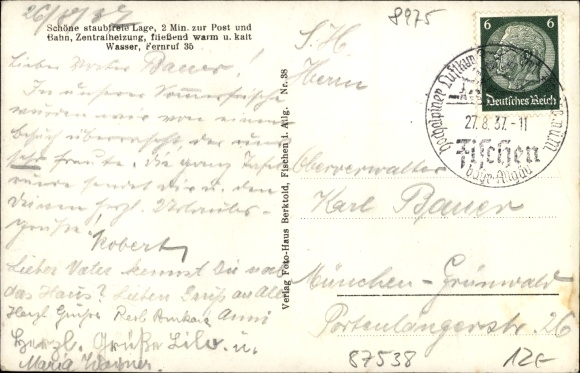 26/8/37
Schöne staubfreie Lage, 2 Min. zur Post und
Bahn, Zentralheizung, fließend warm u. kalt
Wasser, Fernruf 35
Lieber Vater Bauer!
In unserer Sommerfrische
wurden wir von einem
Besuch überrascht, der uns
sehr freute. Die ganze Tafel
Dir u. den
Deinen herzl. Urlaubs-
grüße
Robert
Lieber Vater kennst Du noch
das Haus? Lieben Gruß an Alle
Herzl. Grüße Anni
Herzl. Grüße Lilo u.
Maria Wagner.
Verlag Foto-Haus Berktold, Fischen i. Allg. Nr. 38
8975
S. H.
Herrn
Oberverwalter
Karl Bauer
München-Grünwald
Portenlängerstr. 26
6 6
Deutsches Reich
Hochalpiner Luftkurort
27.8.37.-11
Fischen
bayr. Allgäu
87538
12€